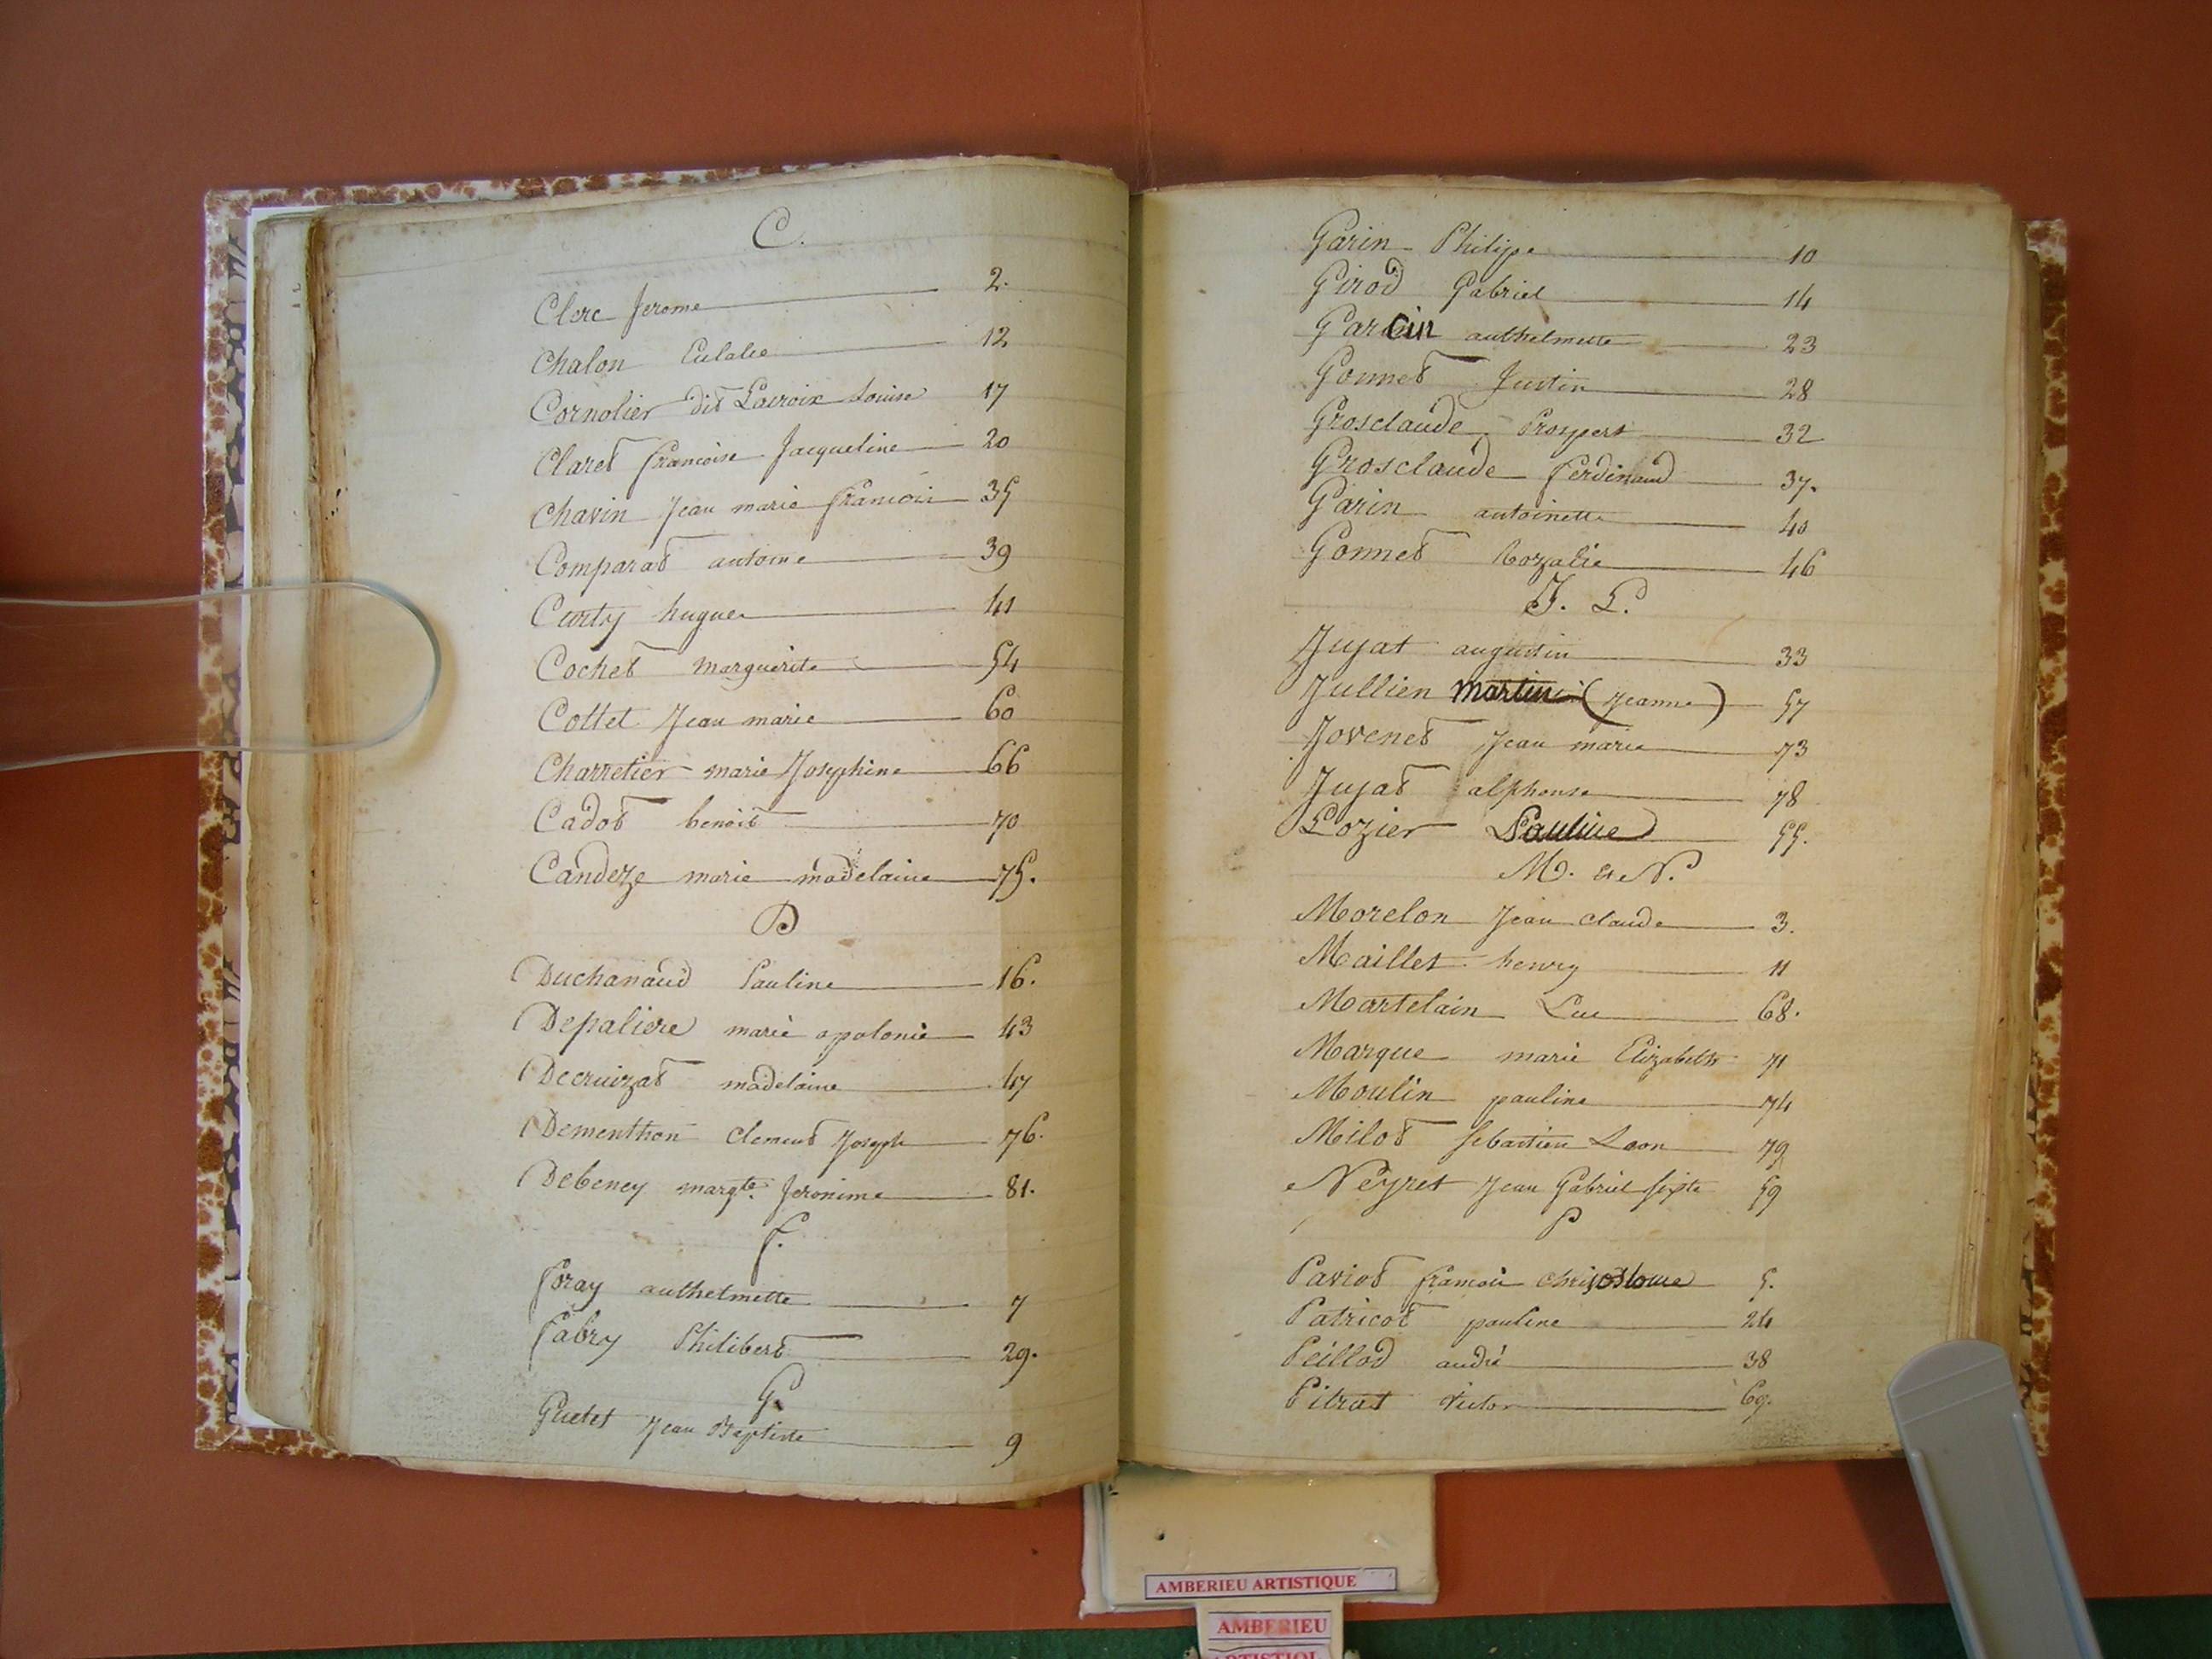 C.
Clerc Jerome 2.
Chalon Eulalie 12
Cornolier dit Lacroix Louise 17
Claret francoise Jacqueline 20
Chavin Jean marie francois 35
Comparat antoine 39
Curty hugues 41
Cochet marguerite 54
Cottet Jean marie 60
Charretier marie Josephine 66
Cadot benoit 70
Candeze marie madelaine 75.
D
Duchanaud Pauline 16.
Depaliere marie apolonie 43
Decruizat madelaine 47
Dementhon Clement Joseph 76.
Debeney margte. Jeronime 81.
f.
foray anthelmette 7
fabry Philibert 29.
G.
Guetet Jean Baptiste 9
Garin Philipe 10
Girod Gabriel 14
Garcin anthelmette 23
Gonnet Justin 28
Grosclaude Prospert 32
Grosclaude ferdinand 37.
Garin antoinette 40
Gonnet Rozalie 46
J. L.
Jujat augustin 33
Jullien martin (Jeanne) 57
Jovenet Jean marie 73
Jujat alphonse 78
Lozier Pauline 55.
M. et N.
Morelon Jean claude 3.
Maillet henry 11
Martelain Luc 68.
Marque marie Elizabeth 71
Moulin pauline 74
Milot Sebastien Leon 79
Neyret Jean Gabriel Sixte 59
P
Paviot francois chrisostome 5.
Patricot pauline 24
Peillod andré 38
Pitrat victor 69.
AMBERIEU ARTISTIQUE
AMBERIEU